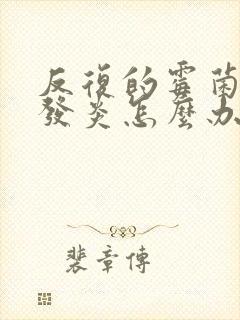 反復的霉菌
發炎怎麼办
裴章傳